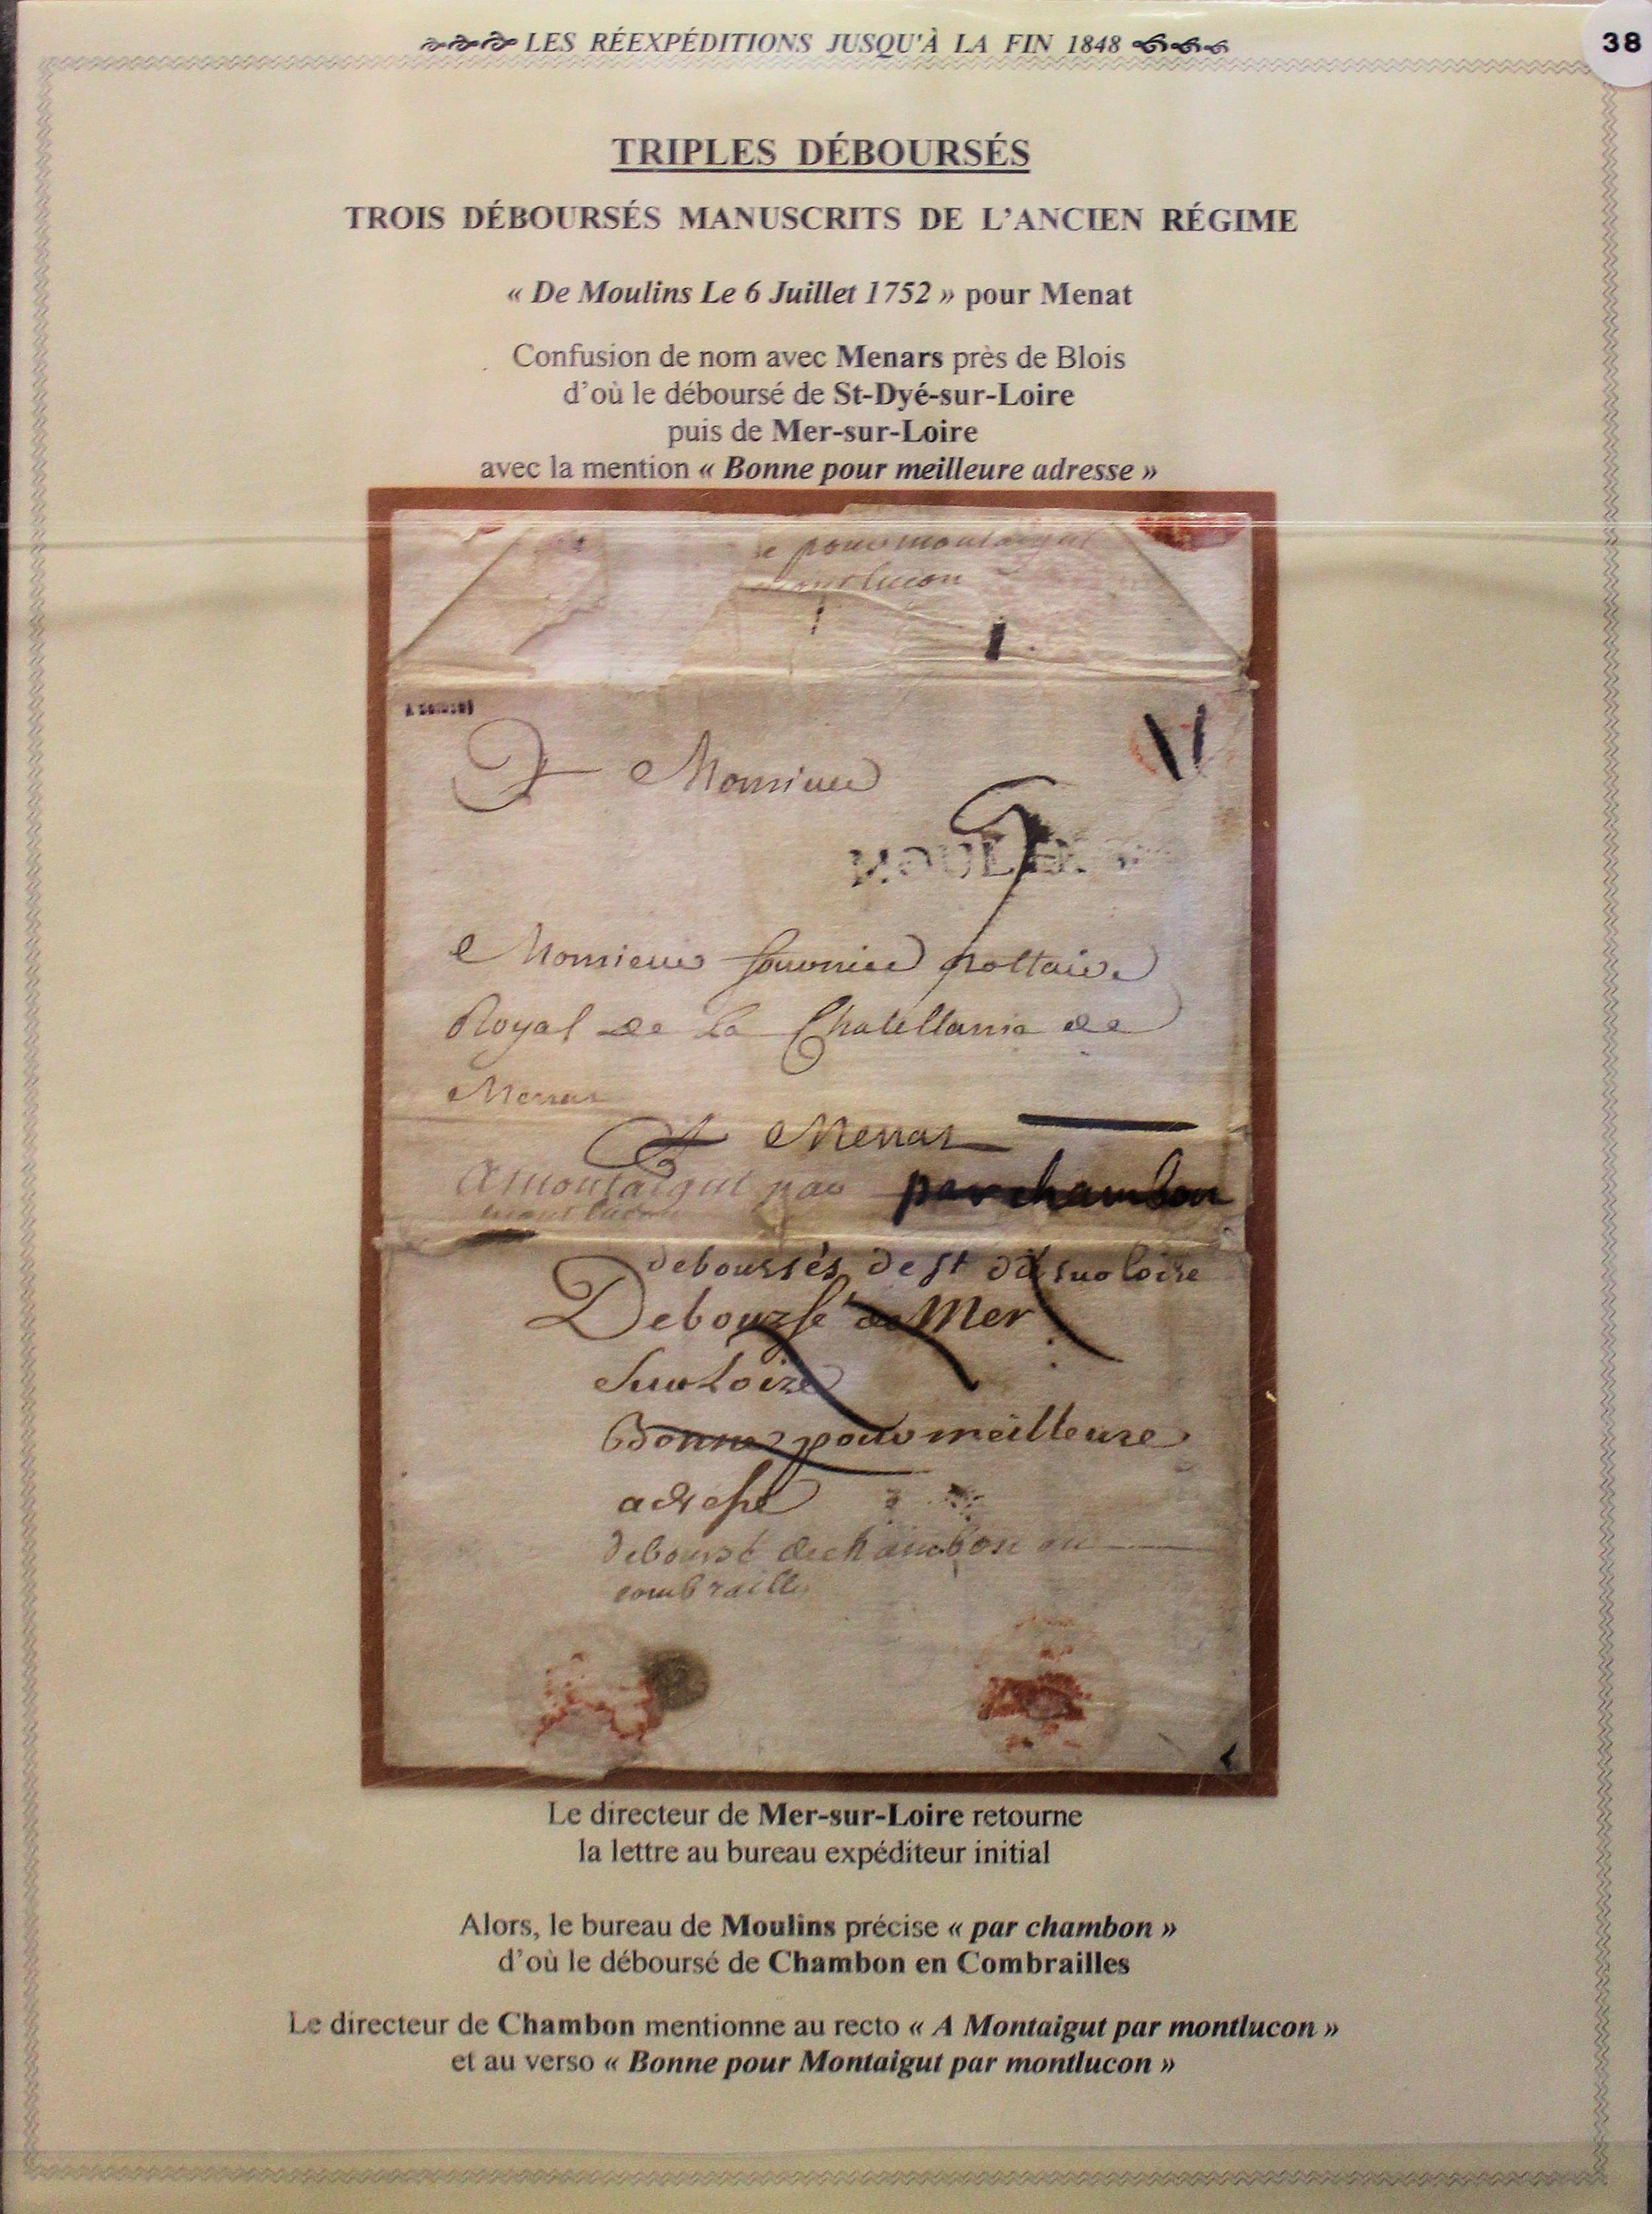 LES RÉEXPÉDITIONS JUSQU'À LA FIN 1848
38
TRIPLES DÉBOURSÉS
TROIS DÉBOURSÉS MANUSCRITS DE L'ANCIEN RÉGIME
« De Moulins Le 6 Juillet 1752 » pour Menat
Confusion de nom avec Menars près de Blois
d'où le déboursé de St-Dyé-sur-Loire
puis de Mer-sur-Loire
avec la mention « Bonne pour meilleure adresse »
e pour montaigut
montlucon
A Monsieur
MOULINS
Monsieur nottaire
Royal de la Chatellanie de
Menat
A Menat
A montaigut par par chambon
montlucon
deboursés de st dié sur loire
Deboursé de Mer
Sur Loire
Bonne pour meilleure
adresse
deboursé de chambon en
combrailles
Le directeur de Mer-sur-Loire retourne
la lettre au bureau expéditeur initial
Alors, le bureau de Moulins précise « par chambon »
d'où le déboursé de Chambon en Combrailles
Le directeur de Chambon mentionne au recto « A Montaigut par montlucon »
et au verso « Bonne pour Montaigut par montlucon »